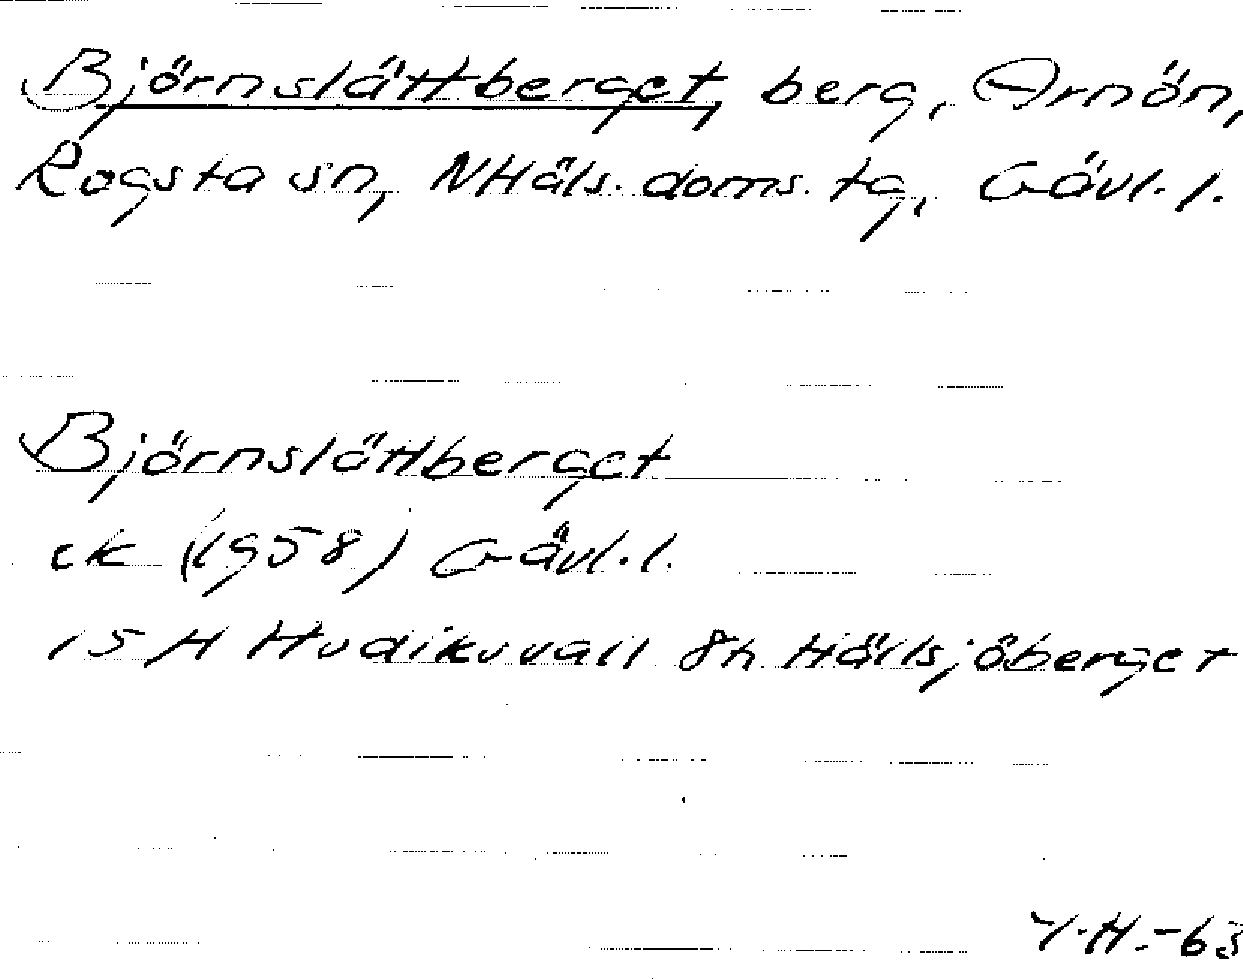 Björnslättberget, berg, Arnön,
Rogsta sn, NHäls. doms. tg, Gävl. l.
Björnslättberget
ek (1958) Gävl. l.
15 H Hudiksvall 8h Hällsjöberget
Y.H.-63